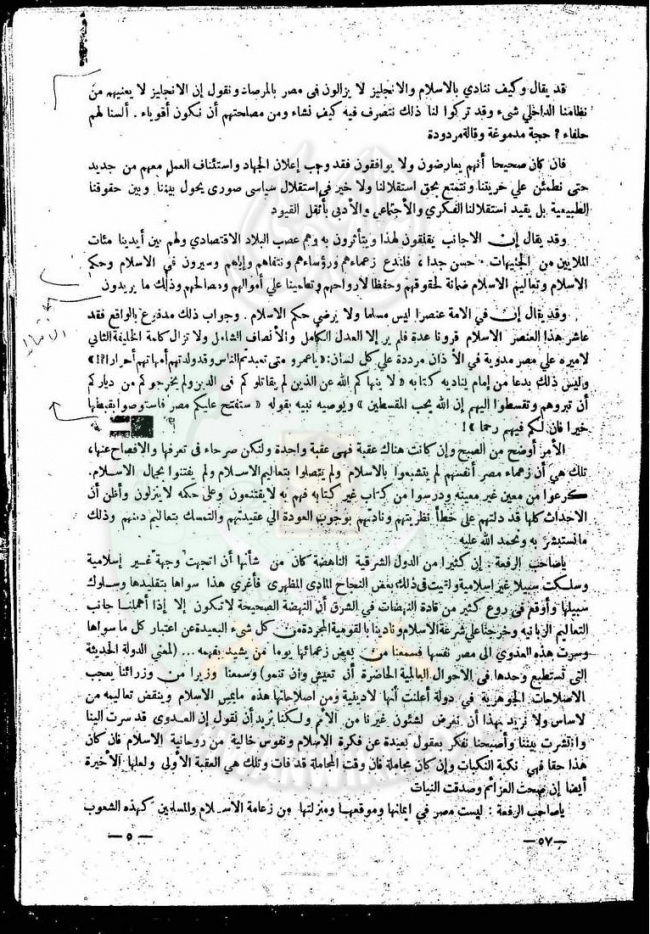 قد يقال وكيف ننادي بالاسلام والانجليز لا يزالون فى مصر بالمرصاد ونقول إن الانجليز لا يعنيهم من
نظامنا الداخلي شىء وقد تركوا لنا ذلك نتصرف فيه كيف نشاء ومن مصلحتهم أن نكون أقوياء . ألسنا لهم
حلفاء ؟ حجة مدموغة وقالة مردودة
فان كان صحيحا أنهم يعارضون ولا يوافقون فقد وجب إعلان الجهاد واستئناف العمل معهم من جديد
حتى نطمئن علي حريتنا ونتمتع بحق استقلالنا ولا خير فى استقلال سياسى صورى يحول بيننا وبين حقوقنا
الطبيعية بل يقيد استقلالنا الفكري والأجتماعي والأدبى بأثقل القيود
وقد يقال إن الاجانب يقلقون لهذا ويتأثرون به وهم عصب البلاد الاقتصادي ولهم بين أيدينا مئات
الملايين من الجنيهات . حسن جدا ، فلندع زعماءهم ورؤساءهم ونتفاهم وإياهم وسيرون في الاسلام وحكم
الاسلام وتعاليم الاسلام ضمانة لحقوقهم وحفظا لارواحهم وتطمينا علي أموالهم ومصالحهم وذلك ما يريدون
وقد يقال إن في الامة عنصرا ليس مسلما ولا يرضي حكم الاسلام . وجواب ذلك مدفوع بالواقع فقد
عاشر هذا العنصر الاسلام قرونا عدة فلم ير إلا العدل الكامل والأنصاف الشامل ولا تزال كلمة الخليفة الثاني
لاميره علي مصر مدوية في الأذان مرددة علي كل لسان : « ياعمرو متى تعبدتم الناس وقد ولدتهم أمهاتهم أحرارا ؟! »
وليس ذلك بدعا من إمام يناديه كتابه « لا ينهاكم الله عن الذين لم يقاتلوكم فى الدين ولم يخرجوكم من دياركم
أن تبروهم وتقسطوا اليهم إن الله يحب المقسطين » ويوصيه نبيه بقوله « ستفتح عليكم مصر فاستوصوا بقبطها
خيرا فان لكم فيهم رحما » !
الأمر أوضح من الصبح وإن كانت هناك عقبة فهى عقبة واحدة ولنكن صرحاء فى تعرفها والافصاح عنها ،
تلك هى أن زعماء مصر أنفسهم لم يتشبعوا بالاسلام ولم يتصلوا بتعاليم الاسلام ولم يفتنوا بجمال الاسلام .
كرعوا من معين غير معينه ودرسوا من كتاب غير كتابه فهم به لا يقتنعون وعلى حكمه لا ينزلون وأظن أن
الاحداث كلها قد دلتهم على خطأ نظريتهم ونادتهم بوجوب العودة الي عقيدتهم والتمسك بتعاليم دينهم وذلك
ما نستبشر به ونحمد الله عليه
ياصاحب الرفعة : إن كثيرا من الدول الشرقية الناهضة كان من شأنها أن اتجهت وجهة غير إسلامية
وسلكت سبيلا غير اسلامية ولقيت فى ذلك بعض النجاح المادي المظهرى فأغري هذا سواها بتقليدها وسلوك
سبيلها وأوقع في روع كثير من قادة النهضات في الشرق أن النهضة الصحيحة لا تكون إلا إذا أهملنا جانب
التعاليم الربانيه وخرجنا علي شرعة الاسلام ونادينا بالقومية المجردة من كل شىء البعيدة عن اعتبار كل ما سواها
وسرت هذه العدوي الى مصر نفسها فسمعنا من بعض زعمائها يوما من يشيد بفهمه ... (لمعني الدولة الحديثة
التى تستطيع وحدها في الاحوال العالمية الحاضرة أن تعيش وأن تنمو) وسمعنا وزيرا من وزرائنا يعجب
الاصلاحات الجوهرية في دولة أعلنت أنها لادينية ومن اصلاحاتها هذه مايمس الاسلام وينقض تعاليمه من
لاساس ولا نريد بهذا أن نعرض لشئون غيرنا من الأمم ولكنا نريد أن نقول إن العدوى قد سرت الينا
وانتشرت بيننا وأصبحنا نفكر بعقول بعيدة عن فكرة الاسلام ونفوس خالية من روحانية الاسلام فان كان
هذا حقا فهي نكبة النكبات وإن كان مجاملة فان وقت المجاملة قد فات وتلك هي العقبة الأولى ولعلها الأخيرة
أيضا إن صحت العزائم وصدقت النيات
ياصاحب الرفعة : ليست مصر في ايمانها وموقعها ومنزلتها من زعامة الاسلام والمسلمين كهذه الشعوب
— ٥ —
— ٥٧ —